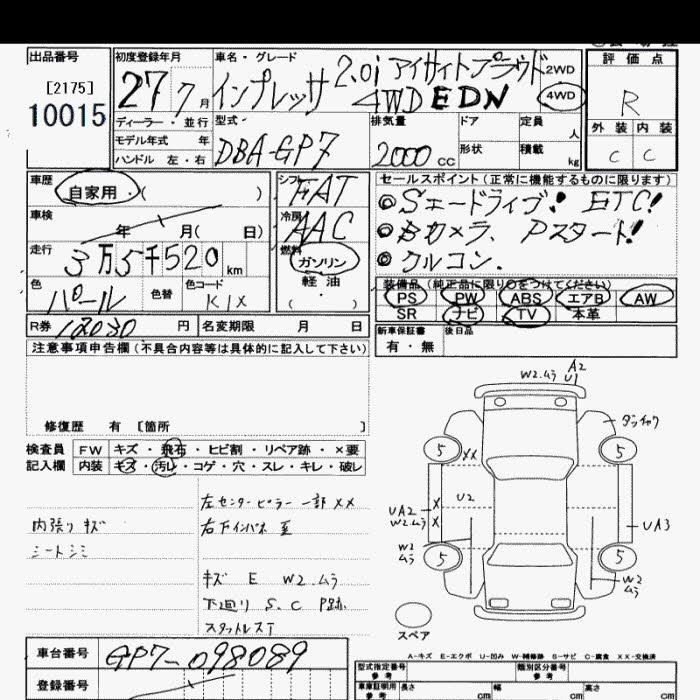 出品番号
[2175]
10015
初度登録年月
27 7 月
車名・グレード
インプレッサ 2.0i アイサイトプラウド
4WD EDN
2WD
4WD
評価点
R
外装 内装
C C
ディーラー・並行
モデル年式 年
ハンドル 左・右
型式
DBA-GP7
排気量
2000 cc
ドア
形状
定員 人
積載 kg
車歴
自家用・( )
車検
年 月( 日)
走行
3万5千520 km
色
パール
色替
色コード
K1X
シフト
FAT
冷房
AAC
燃料
ガソリン
軽油
( )
セールスポイント(正常に機能するものに限ります)
◎Sエードライブ! ETC!
◎Bカメラ、Pスタート!
◎クルコン.
装備品(純正品に限り○をつけてください)
PS PW ABS エアB AW
SR ナビ TV 本革
R券 12030 円
名変期限 月 日
新車保証書
有・無
後日品
注意事項申告欄(不具合内容等は具体的に記入して下さい)
修復歴 有 [箇所 ]
検査員
記入欄
FW キズ・飛石・ヒビ割・リペア跡・×要
内装 キズ・汚レ・コゲ・穴・スレ・キレ・破レ
内張り キズ
シートシミ
左センターピラー 一部 XX
右下インパネ 歪
キズ E W2.ムラ
下廻り S.C P跡
スタットレスT
W2.ムラ A2
U1
ダッチャク
5
5
XX
U2
UA2 X
W2.ムラ X
UA3
W2
ムラ
5
5
W2
ムラ
スペア
A-キズ E-エクボ U-凹み W-補修跡 S-サビ C-腐食 XX-交換済
車台番号
GP7-098089
登録番号
型式指定番号
参考
類別区分番号
参考
車庫証明用
参考
長さ cm
幅 cm
高さ cm